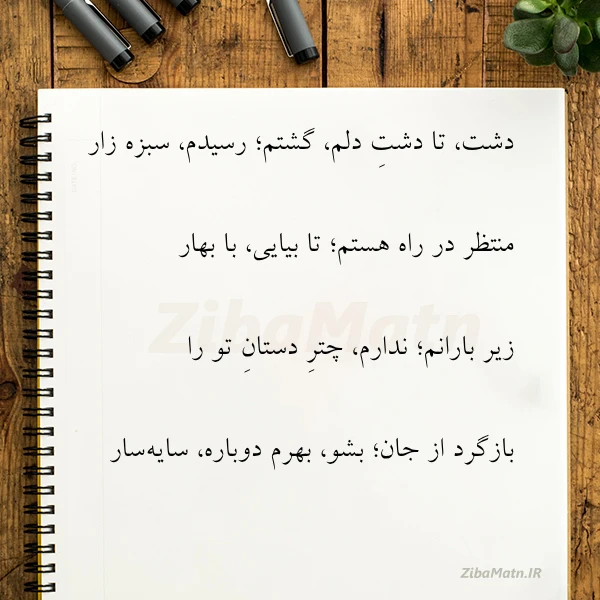 دشت، تا دشتِ دلم، گشتم؛ رسیدم، سبزه زار
منتظر در راه هستم؛ تا بیایی، با بهار
ZibaMatn
زیر بارانم؛ ندارم، چترِ دستانِ تو را
بازگرد از جان؛ بشو، بهرم دوباره، سایه‌سار
ZibaMatn.IR